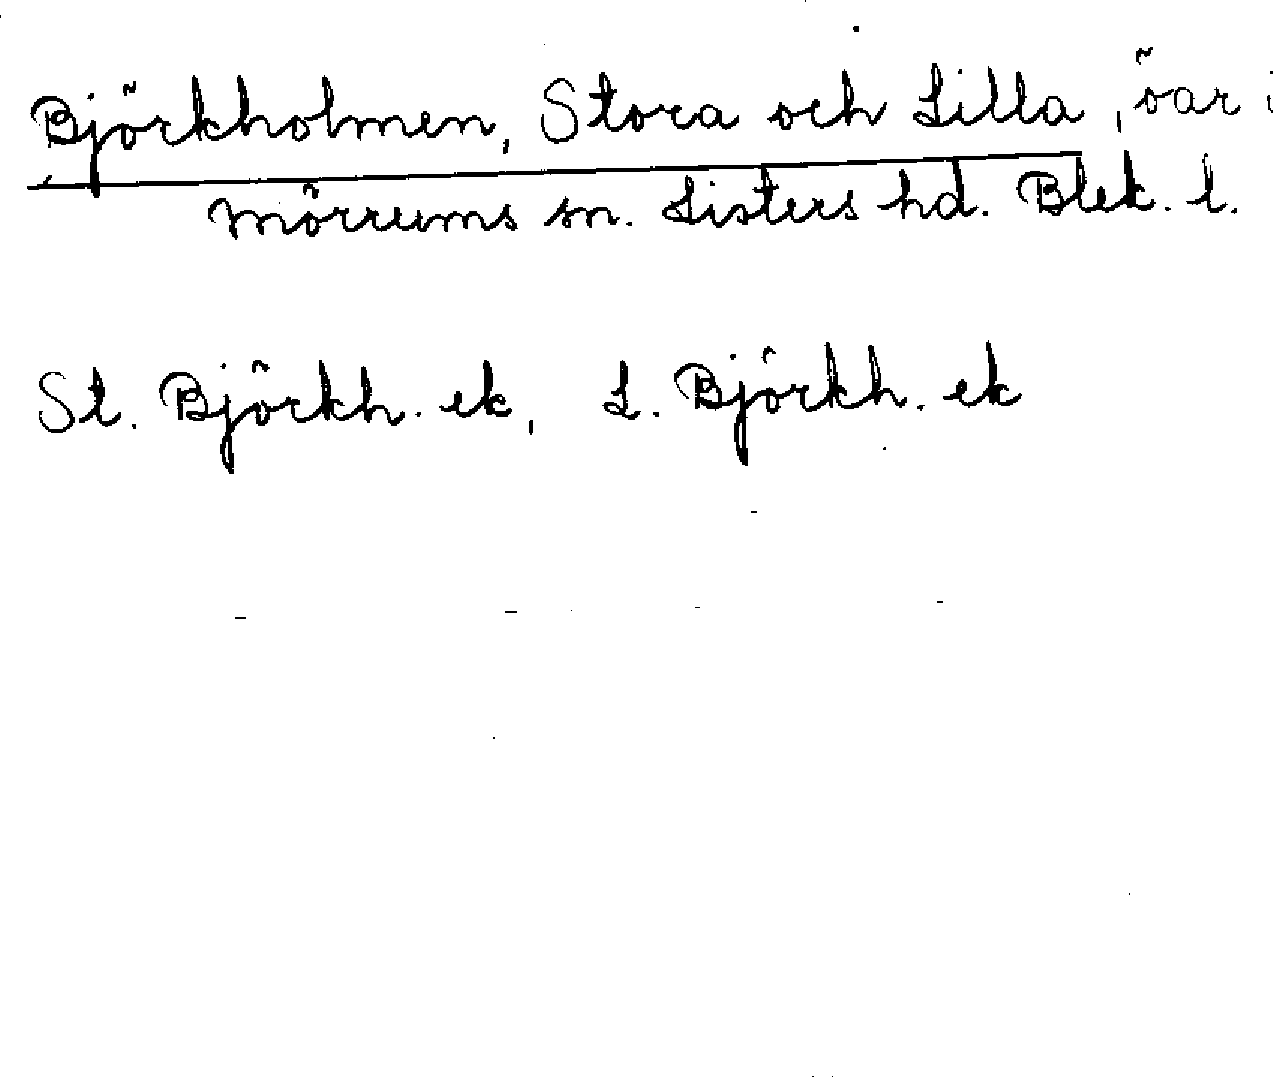 Björkholmen, Stora och Lilla, öar i
Mörrums sn. Listers hd. Blek. l.
St. Björkh. ek, L. Björkh. ek